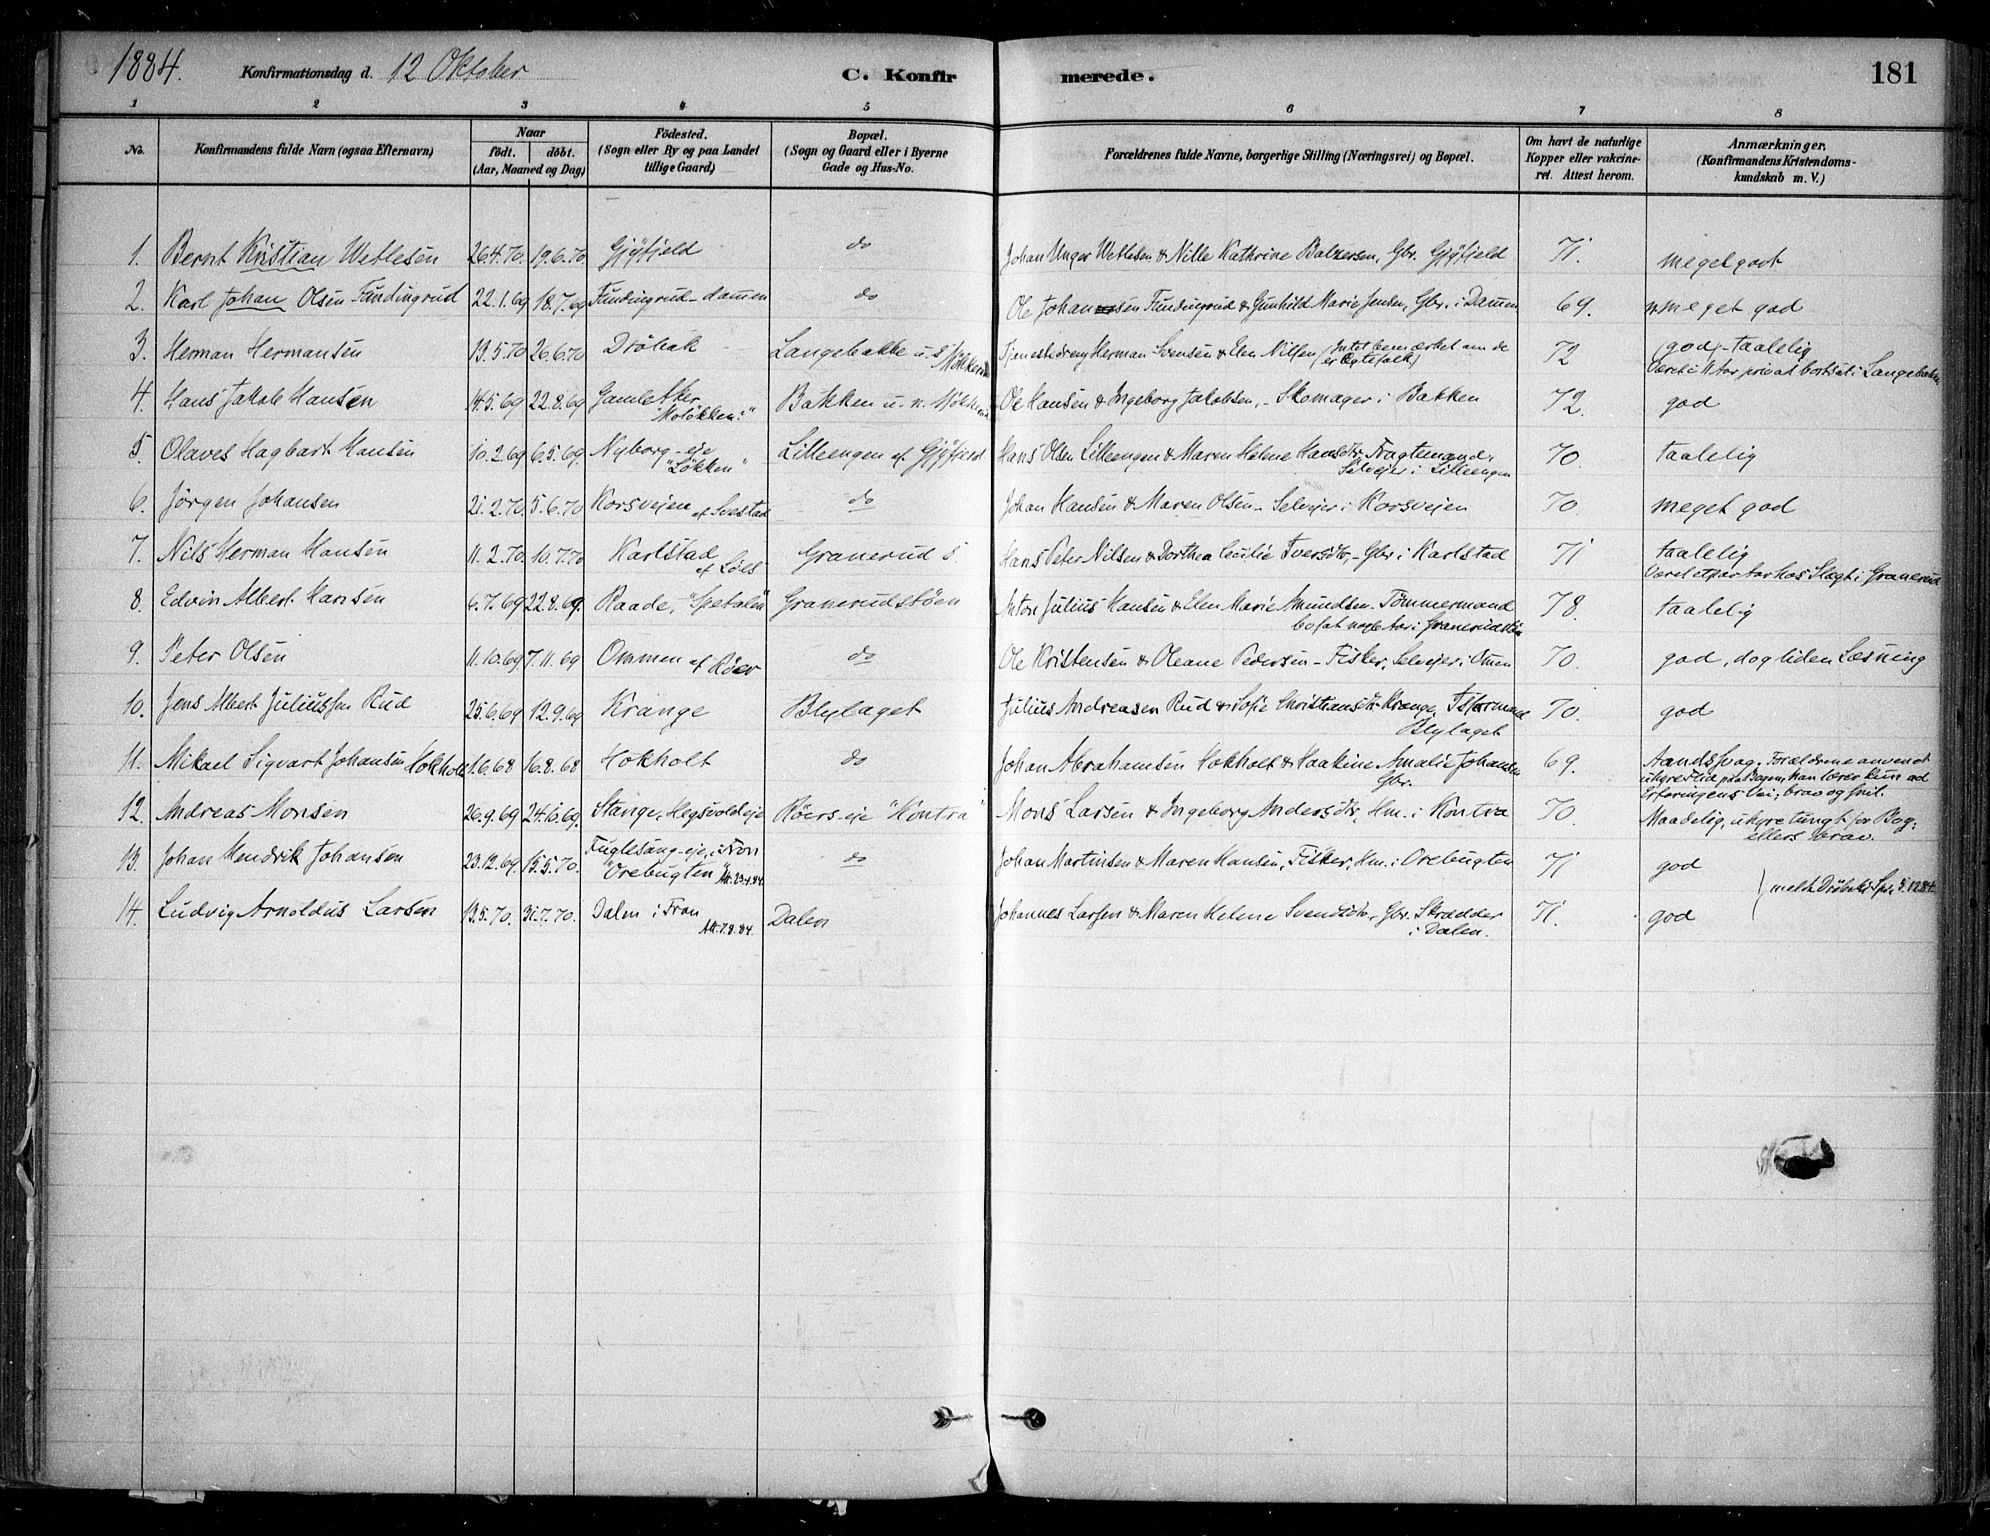 1884. Konfirmationsdag d. 12 Oktober C. Konfirmerede. 181
1 2 3 4 5 6 7 8
No. Konfirmandens fulde Navn (ogsaa Efternavn) Naar födt. döbt. (Aar, Maaned og Dag) Födested. (Sogn eller By og paa Landet tillige Gaard) Bopæl. (Sogn og Gaard eller i Byerne Gade og Hus-No. Forældrenes fulde Navne, borgerlige Stilling (Næringsvei) og Bopæl. Om havt de naturlige Kopper eller vakcineret. Attest herom. Anmærkninger. (Konfirmandens Kristendomskundskab m. V.)
1. Bernt Kristian Wetlesen 26.4.70. 19.6.70 Gjøfjeld do Johan Unger Wetlesen & Nille Kathrine Balzersen, Gbr. Gjøfjeld 71. meget godt
2. Karl Johan Olsen Fundingrud 22.1.69 18.7.69 Fundingrud-dammen do Ole Johansen Fundingrud & Gunhild Marie Jensen, Gbr. i Dammen 69. meget god
3. Herman Hermansen 13.5.70 26.6.70 Dröbak Langebakke u. s/ Tjenestedreng Herman Svensen & Elen Nilsen (Intet bemærket om de er Ægtefolk) 72 god-taalelig
Været i 11 Aar privat bortsat i Langebakke
4. Hans Jakob Hansen 14.5.69 22.8.69 Gamle Aker "Moløkken" Bakken u. n. Ole Hansen & Ingeborg Jakobsen, - Skomager i Bakken 72. god
5. Olaves Hagbart Hansen 10.2.69 6.5.69. Nyborg-eje "Løkken" Lilleengen af Gjøfjeld Hans Olsen Lilleengen & Maren Helene Hansdtr. Fragtemand, Selvejer i Lilleengen 70. taalelig
6. Jørgen Johansen 21.2.70. 5.6.70 Korsvejen af Svestad do Johan Hansen & Maren Olsen - Selvejer i Korsvejen 70. meget god
7. Nils Herman Hansen 11.2.70. 10.7.70 Karlstad af Løes Granerud s. Hans Peter Nilsen & Dorthea Cecilie Iversdtr, - Gbr. i Karlstad 71 taalelig
Været et par Aar hos Slægt i Granerud
8. Edvin Albert Hansen 6.7.69 22.8.69. Raade, "Spetalen" Granerudstøen Anton Julius Hansen & Elen Marie Amundsen. Tömmermand bosat nogle Aar i Granerudstøen 78. taalelig
9. Peter Olsen 11.10.69 7.11.69 Ommen af Röer do Ole Kristensen & Oleane Pedersen - Fisker, Selvejer i Omen 70. god, dog liden Læsning
10. Jens Albert Juliussen Rud 25.6.69 12.9.69 Krange Blylaget Julius Andreasen Rud & Sofie Christiansdtr Krange, Blylaget 70. god
11. Mikael Sigvart Johansen Hokholt 1.6.68 16.8.68 Hokholt do Johan Abrahamsen Hokholt & Haakine Amalie Johansen Gbr. 69. Aandssvag. Forældrene anvendt uhyre Tid paa Bogen, han lærer kun ad Erfaringens Vei, brav og snil.
12. Andreas Monsen 26.9.69 24.10.69. Stange, Hegsvoldeje Röers-eje "Kontra" Mons Larsen & Ingeborg Andersdtr, Hm. i Kontra 70. Maadelig, uhyre tungt for Bog, ellers brav.
13. Johan Hendrik Johansen 23.12.69. 15.5.70. Fuglesang-eje, i Fron "Orebugten" Att. 23.4.84. do Johan Martinsen & Maren Hansen, Fisker, Hm. i Orebugten 71 god
14. Ludvig Arnoldus Larsen 13.5.70. 31.7.70. Dalen i Fron Att. 7.8.84. Dalen Johannes Larsen & Maren Helene Svendsdtr. Gbr. Skrædder i Dalen. 71. god
} meldt Dröbaks Spr. 5.12.84.